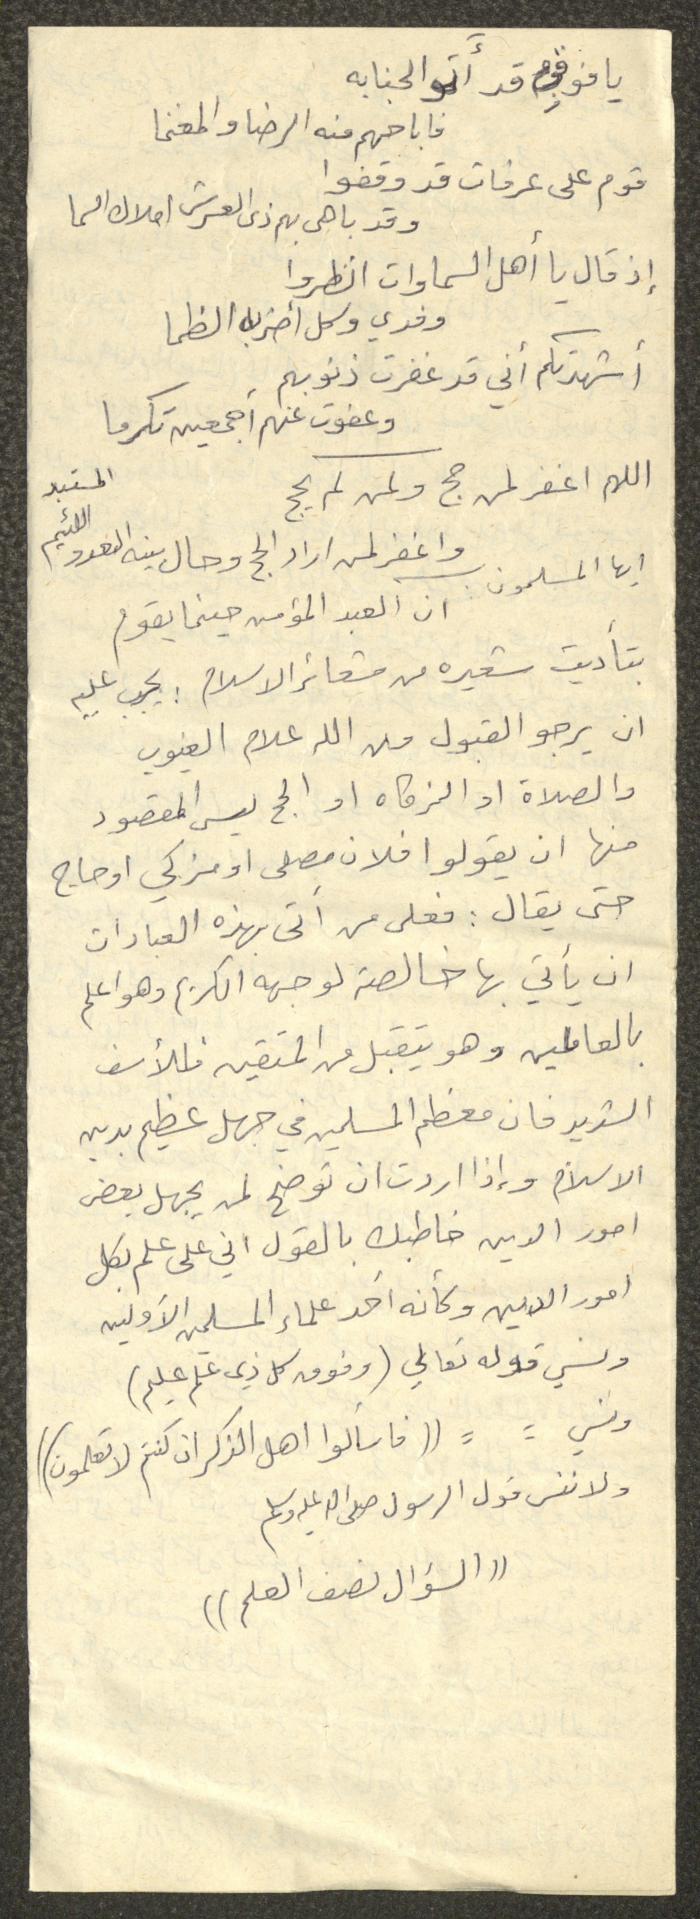 يا فوج قد أتوا لجنابه
فاباحهم منه الرضا والمغنما
قوم على عرفات قد وقفوا
وقد باهى بهم ذى العرش املاك السما
إذ قال يا أهل السماوات انظروا
وفدي وكل أضر به الظما
أشهدتكم أني قد غفرت ذنوبهم
وعفوت عنهم أجمعين تكرما
اللهم اغفر لمن حج ولمن لم يحج
واغفر لمن اراد الحج وحال بينه العدو المستبد اللئيم
ايها المسلمون : ان العبد المؤمن حينما يقوم
بتأديت شعيره من شعائر الاسلام : يجب عليه
ان يرجو القبول من الله علام الغيوب
والصلاة او الزكاه او الحج ليس المقصود
منها ان يقولوا فلان مصلى او مزكي او حاج
حتى يقال : فعلى من أتى بهذه العبادات
ان يأتي بها خالصة لوجهه الكريم وهو اعلم
بالعاملين وهو يتقبل من المتقين فللأسف
الشديد فان معظم المسلمين في جهل عظيم بدين
الاسلام وإذا اردت ان توضح لمن يجهل بعض
امور الدين خاطبك بالقول اني على علم بكل
امور الدين وكأنه أحد علماء المسلمين الأولين
ونسي قوله تعالي (وفوق كل ذي علم عليم)
ونسي = = ((فاسألوا اهل الذكر ان كنتم لا تعلمون))
ولا ننس قول الرسول صلى الله عليه وسلم
((السؤال نصف العلم))